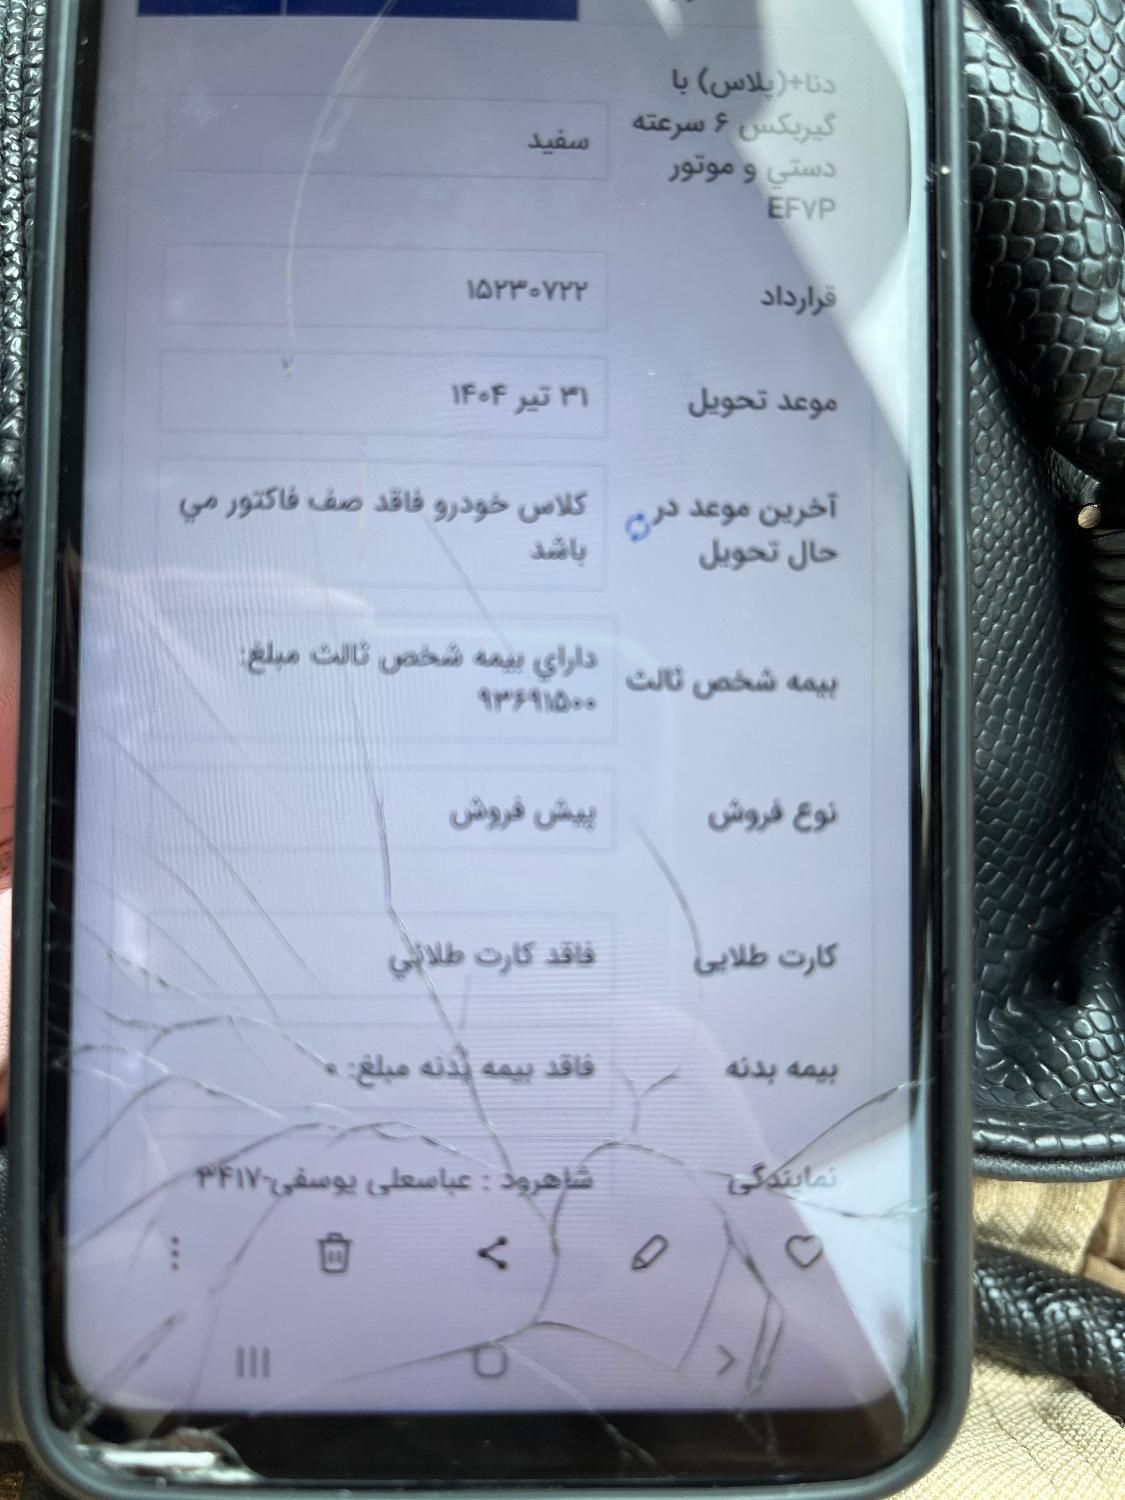 دنا+(پلاس) با
گیربکس ۶ سرعته
دستي و موتور
EF۷P
سفید
قرارداد
۱۵۲۳۰۷۲۲
موعد تحویل
۳۱ تیر ۱۴۰۴
آخرین موعد در
حال تحویل
کلاس خودرو فاقد صف فاکتور مي
باشد
بیمه شخص ثالث
داراي بیمه شخص ثالث مبلغ:
۹۳۶۹۱۵۰۰
نوع فروش
پیش فروش
کارت طلایی
فاقد کارت طلائي
بیمه بدنه
فاقد بیمه بدنه مبلغ: ۰
نمایندگی
شاهرود : عباسعلی یوسفی-۳۴۱۷